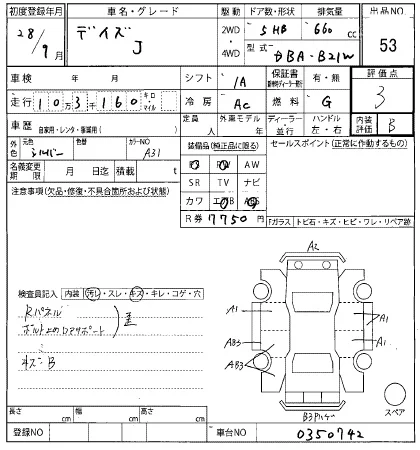 初度登録年月 車名・グレード 駆動 ドア数・形状 排気量 出品NO
28/9月 デイズ J 2WD・4WD 5 HB 660 cc 53
型式 DBA-B21W
車検 年 月 シフト IA 保証書 有・無 評価点
走行 10万3千160 キロ・マイル 冷房 AC 燃料 G 3
車歴 自家用・レンタ・事業用( ) 定員 人 外車モデル 年 ディーラー・並行 ハンドル 左・右 内装評価 B
外色 元色 シルバー 色替 カラーNO A31 装備品(純正品に限る) セールスポイント(正常に作動するもの)
名義変更期限 月 日迄 積載 t PW AW
SR TV ナビ
注意事項(欠品・修復・不具合箇所および状態) カワ エアB ABS
R券 7750円 「ガラス」トビ石・キズ・ヒビ・ワレ・リペア跡
A2
検査員記入 内装 汚レ・スレ・キズ・キレ・コゲ・穴
Rパネル
歪
キズ:B
A1 A1
AB3 A1
AB3
スペア
長さ cm 幅 cm 高さ cm
登録NO 車台NO 0350742